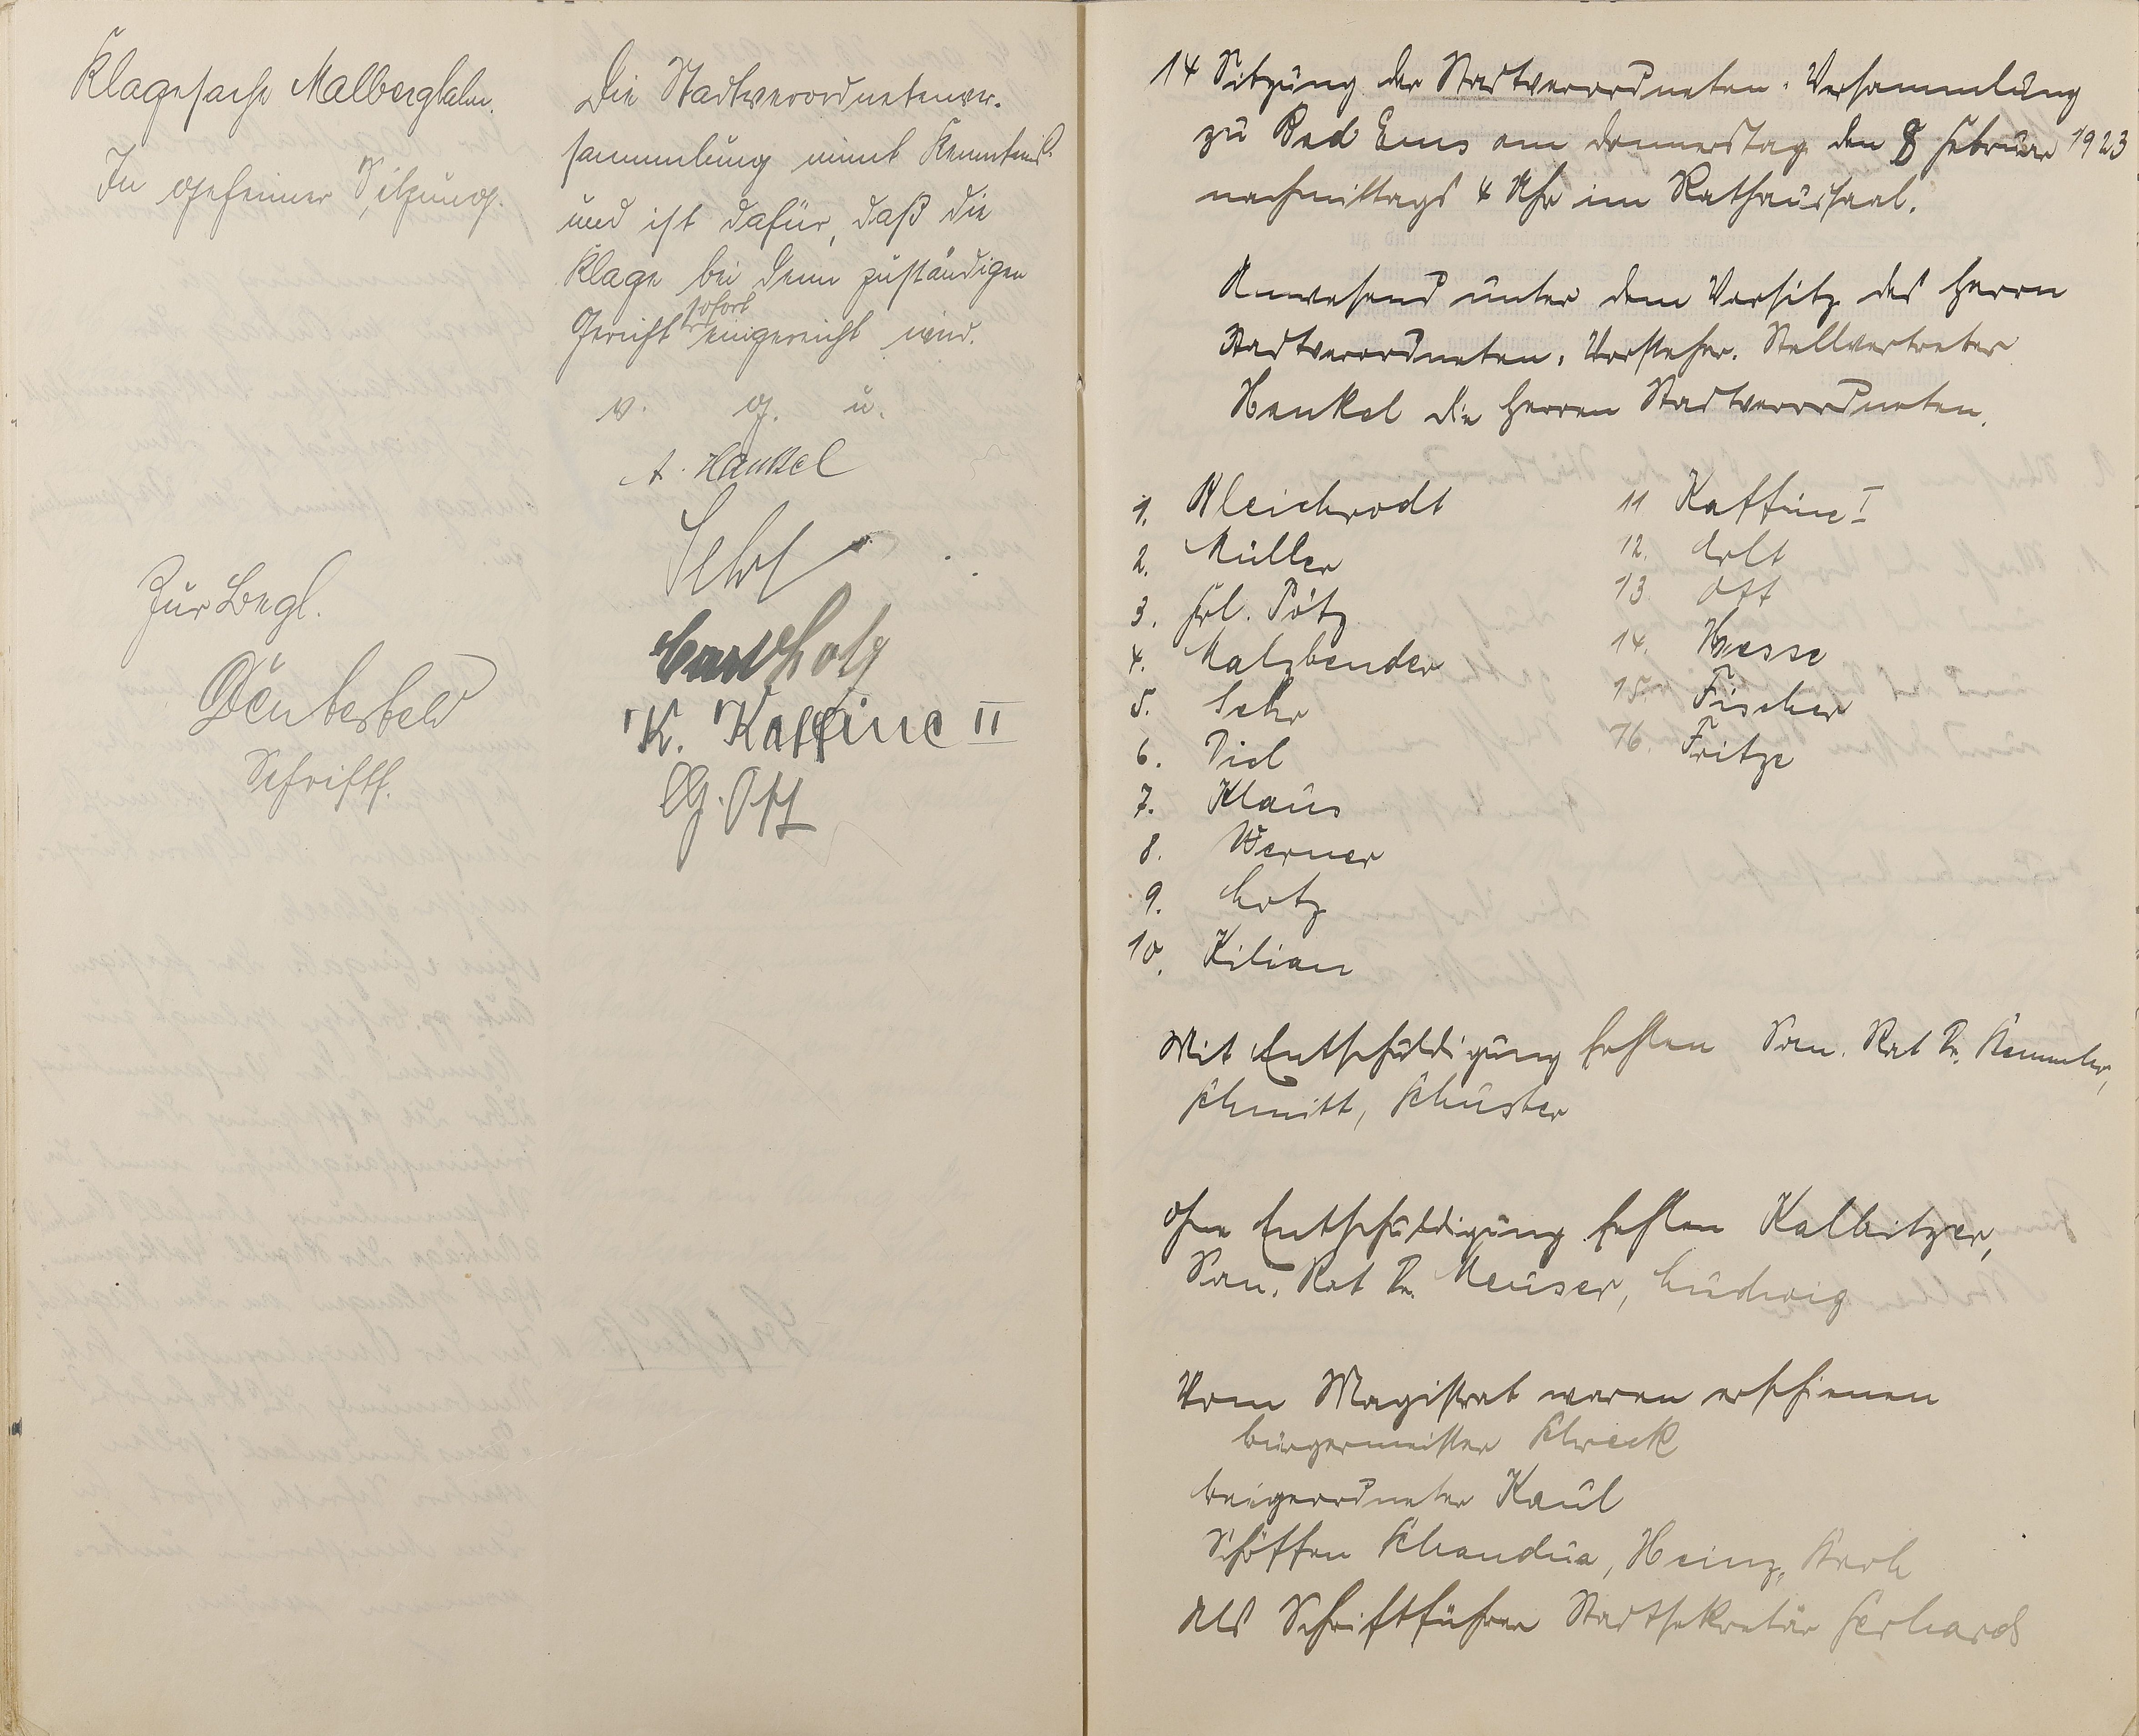 Klagesache Malbergbahn.
In geheimer Sitzung.
Die Stadtverordnetenver-
sammlung nimt Kenntnis
und ist dafür, daß die
Klage bei dem zuständigen
Gericht sofort eingereicht wird.
v. g. u.
A. Hankel
Sehr
Carl Lotz
K. Kaffine II
G. Ott
Zur Begl.
Schriftf.
14 Sitzung der Stadtverordneten-Versammlung
zu Bad Ems am Donnerstag den 8 Februar 1923
nachmittags 4 Uhr im Rathaussaal.
Anwesend unter dem Vorsitz des Herrn
Stadtverordneten-Vorsteher-Stellvertreter
Henkel die Herren Stadtverordneten.
1. Bleichrodt
2. Müller
3. Frl. Pötz
4. Malzbender
5. Sehr
6. Diel
7. Klaus
8. Werner
9. Lotz
10. Kilian
11 Kaffine I
12. Arlt
13. Ott
14. Hesse
15. Fischer
16. Fritze
Mit Entschuldigung fehlen San. Rat Dr. Stemmler,
Schmitt, Schuster
Ohne Entschuldigung fehlen Kalbitzer,
San. Rat Dr. Meuser, Ludwig
Vom Magistrat waren erschienen
Bürgermeister Schreck
Beigeordneter Kaul
Schöffen Schandua, Heinz, Stroh
Als Schriftführer Stadtsekretär Gerhards